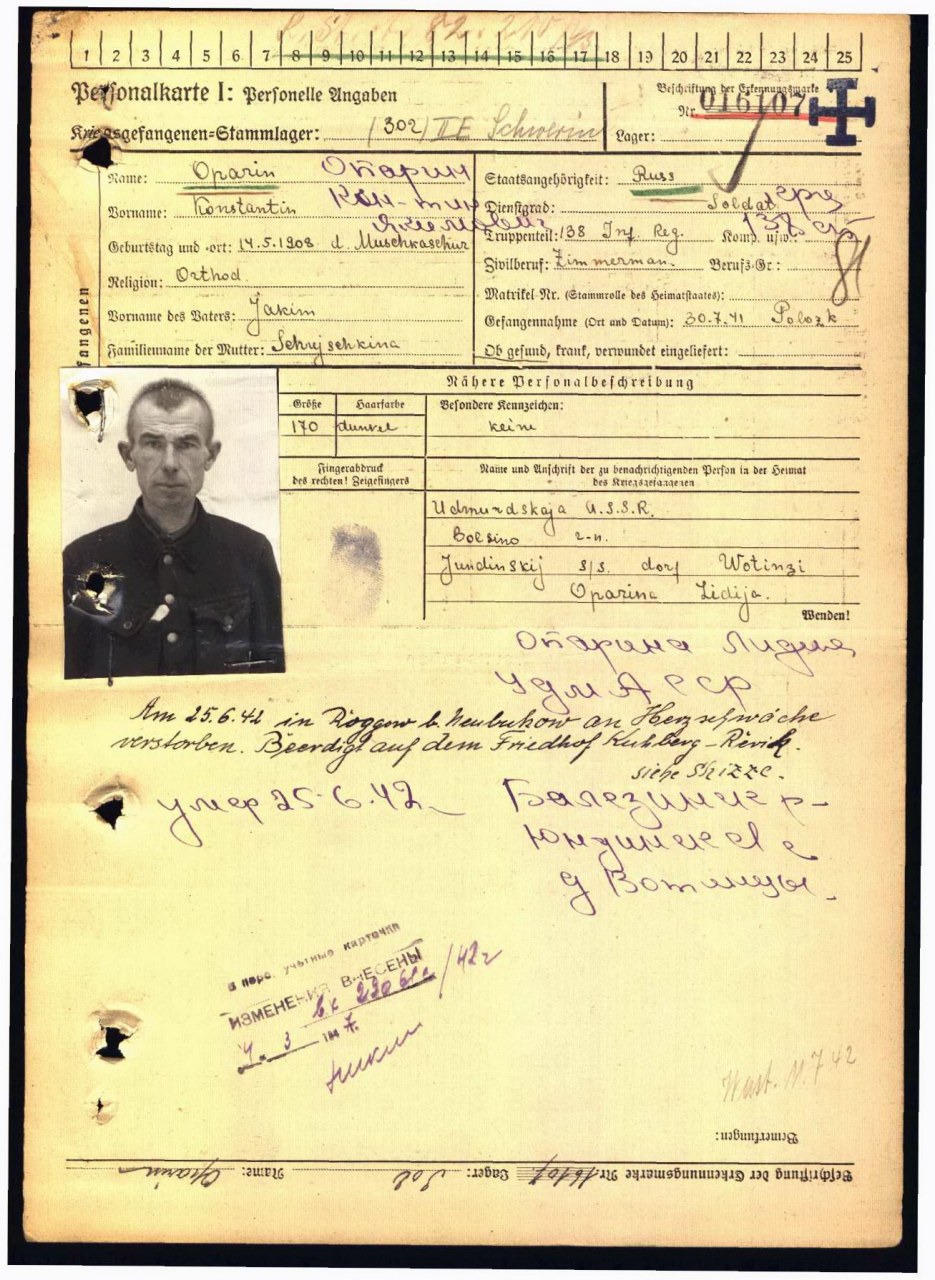 1 2 3 4 5 6 7 8 9 10 11 12 13 14 15 16 17 18 19 20 21 22 23 24 25
Personalkarte I: Personelle Angaben
Beschriftung der Erkennungsmarke
Nr. 016107
Kriegsgefangenen-Stammlager: (302) II E Schwerin
Lager:
Name: Oparin Опарин
Vorname: Konstantin Кон-тин
Якимович
Geburtstag und -ort: 14.5.1908 d. Muschkaschur
Religion: Orthod.
Vorname des Vaters: Jakim
Familienname der Mutter:
Staatsangehörigkeit: Russ
Dienstgrad: Soldat
Truppenteil: 138 Inf. Reg. Komp. usw.:
Zivilberuf: Zimmerman. Berufs-Gr.:
Matrikel-Nr. (Stammrolle des Heimatstaates):
Gefangennahme (Ort und Datum): 30.7.41 Polozk
Ob gesund, krank, verwundet eingeliefert:
fangenen
Nähere Personalbeschreibung
Größe Haarfarbe Besondere Kennzeichen:
170 dunkel keine
Fingerabdruck
des rechten! Zeigefingers
Name und Anschrift der zu benachrichtigenden Person in der Heimat
des Kriegsgefangenen
Udmurdskaja A.S.S.R.
Bolsino r-n.
Jundinskij s/s. dorf Wotinzi
Oparina Lidija.
Wenden!
Опарина Лидия
Удм АССР
Am 25.6.42 in Roggow b. Neubukow an Herzschwäche
verstorben. Beerdigt auf dem Friedhof
siehe Skizze.
умер 25.6.42 Балезинск р-
Юндинск с
д Вотинцы.
в перс. учетные карточки
ИЗМЕНЕНИЯ ВНЕСЕНЫ
/42г
Bemerkungen:
Beschriftung der Erkennungsmarke Nr. 16107 Lager: Name: Oparin